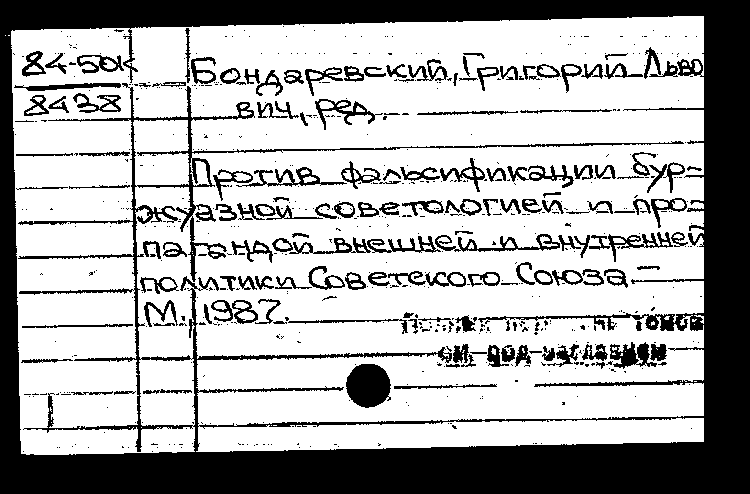 84-50к
8438
Бондаревский, Григорий Льво
вич, ред.
Против фальсификации бур-
жуазной советологией и про-
пагандой внешней и внутренней
политики Советского Союза.–
М., 1987.
томов
см. под заглавием